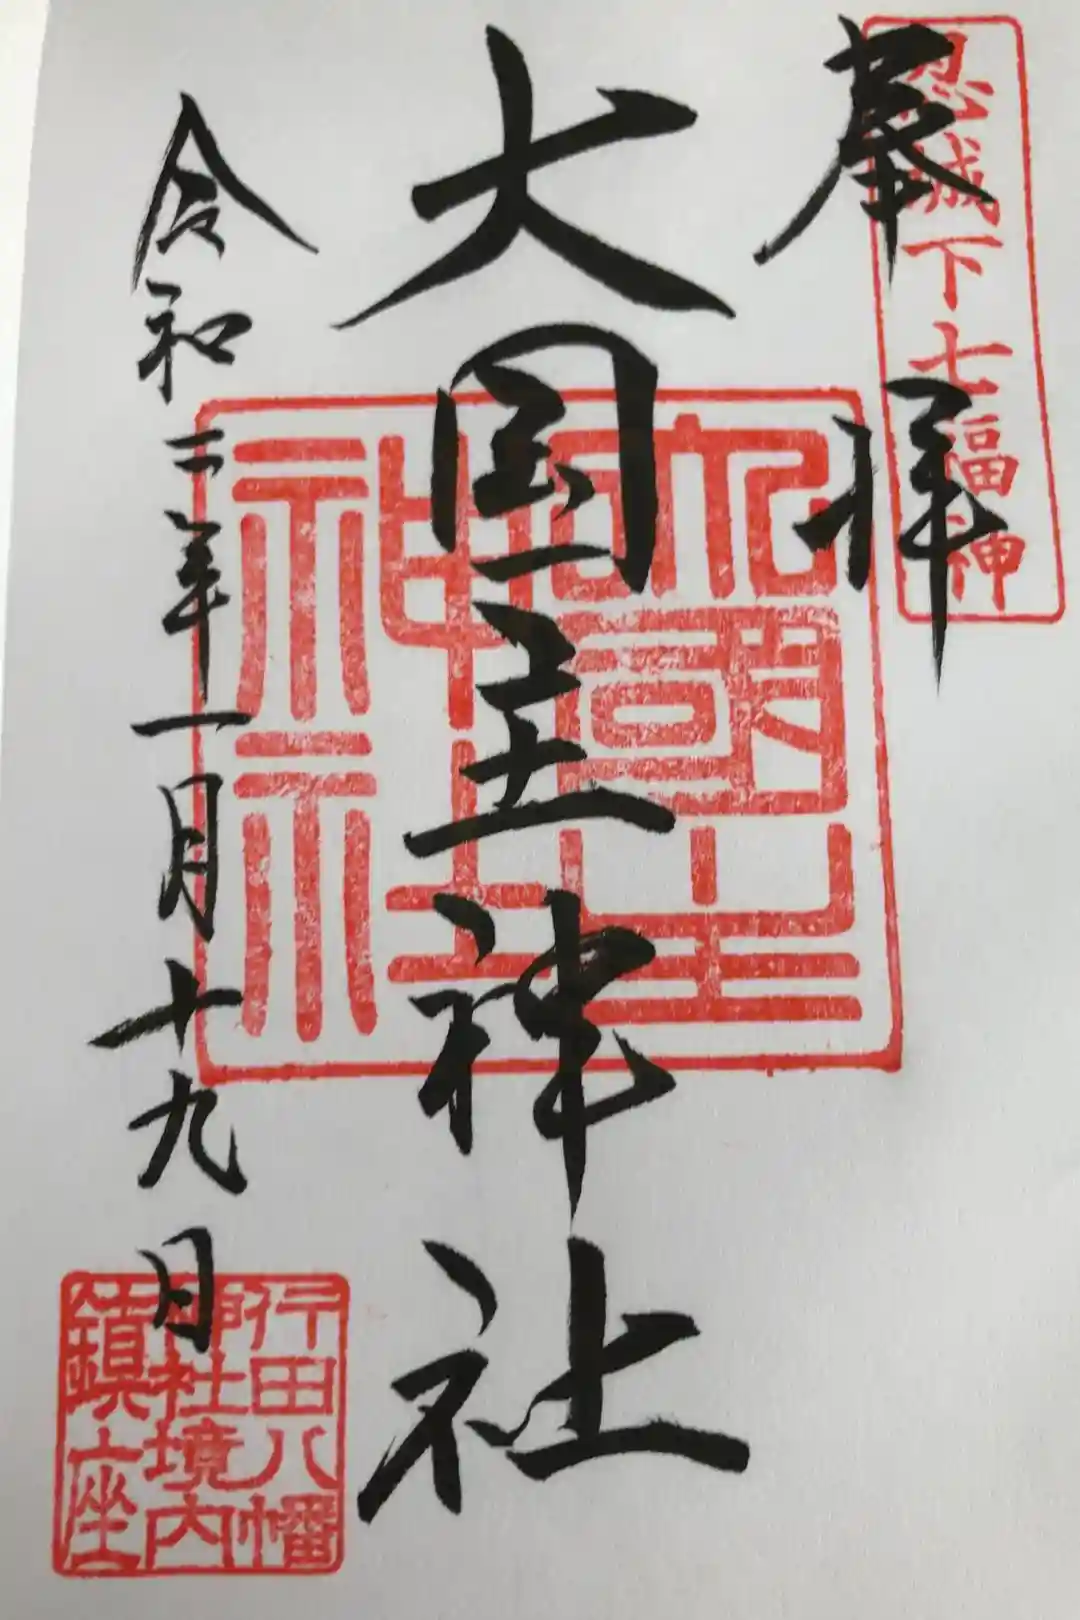 奉拝
忍城下七福神
大国主神社
大國主
神社
令和二年一月十九日
行田八幡
神社境内
鎮座